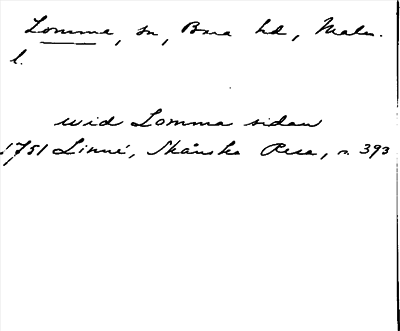 Lomma, sn, Bara hd, Malm.
l.
wid Lomma sidan
1751 Linné, Skånska Resa, s. 393